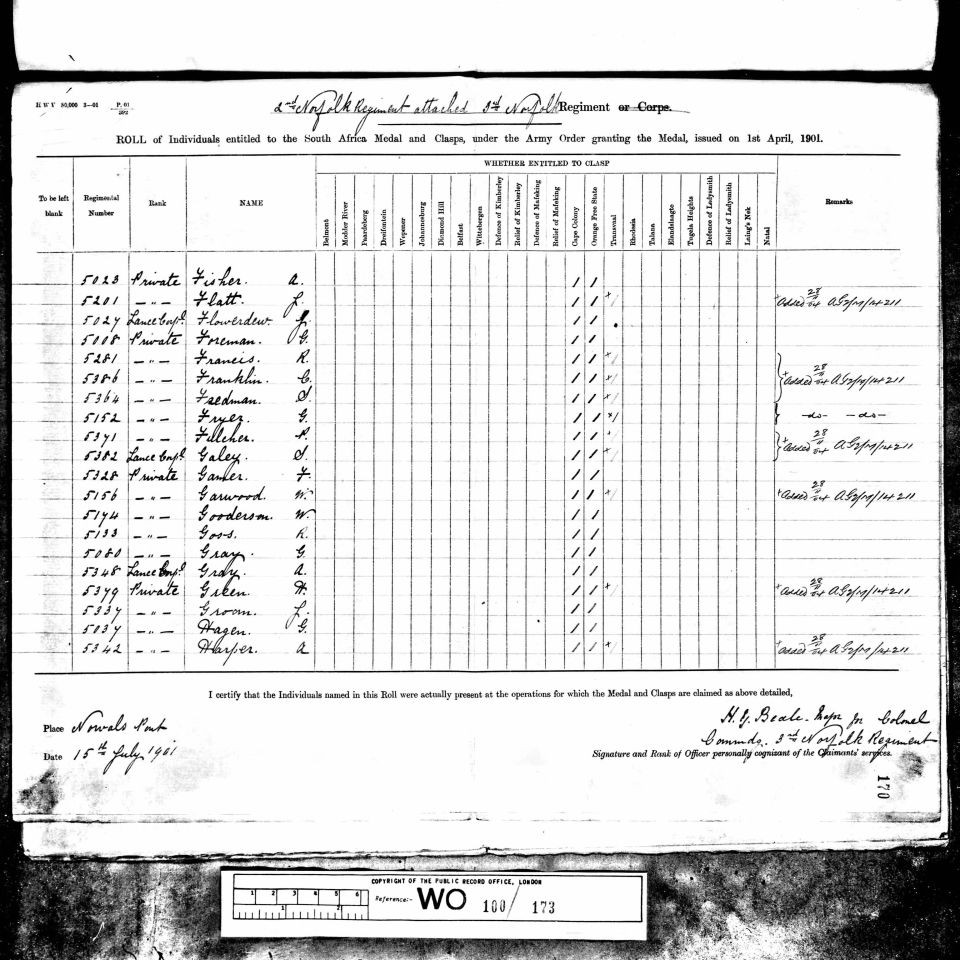 H W V 50,000 3—01 P. 01
292
2nd Norfolk Regiment attached 3rd Norfolk Regiment or Corps.
ROLL of Individuals entitled to the South Africa Medal and Clasps, under the Army Order granting the Medal, issued on 1st April, 1901.
WHETHER ENTITLED TO CLASP
To be left blank Regimental Number Rank NAME Belmont Modder River Paardeberg Dreifontein Wepener Johannesburg Diamond Hill Belfast Wittebergen Defence of Kimberley Relief of Kimberley Defence of Mafeking Relief of Mafeking Cape Colony Orange Free State Transvaal Rhodesia Talana Elandslaagte Tugela Heights Defence of Ladysmith Relief of Ladysmith Laing's Nek Natal Remarks
5023 Private Fisher. A. / /
5201 — " — Flatt. J. / / x/ x Added 28/11/04 AG2/M/14211
5027 Lance Corpl. Flowerdew. / /
5008 Private Foreman. G. / /
5281 — " — Francis. R. / / x/
5386 — " — Franklin. C. / / x/ x Added 28/11/04 AG2/M/14211
5364 — " — Fredman. S. / / x/
5152 — " — Fryer. G. / / x/ —do— —do—
5371 — " — Fulcher. / / x/
5382 Lance Corpl. Galey. S. / / x/ x Added 28/11/04 AG2/M/14211
5328 Private Gamer. F. / /
5156 — " — Garwood. W. / / x/ x Added 28/11/04 AG2/M/14211
5174 — " — Gooderson. W. / /
5133 — " — Goss. R. / /
5080 — " — Gray. G. / /
5348 Lance Corpl. Gray. A. / /
5379 Private Green. H. / / x/ x Added 28/11/04 AG2/M/14211
5337 — " — Groom. J. / /
5037 — " — Hagen. G. / /
5342 — " — Harper. A / / x/ x Added 28/11/04 AG2/M/14211
I certify that the Individuals named in this Roll were actually present at the operations for which the Medal and Clasps are claimed as above detailed,
Place Norvals Pont
Date 15th July 1901
H. G. Beale. Major for Colonel
Commdg. 3rd Norfolk Regiment
Signature and Rank of Officer personally cognizant of the Claimants' services.
170
COPYRIGHT OF THE PUBLIC RECORD OFFICE, LONDON
1 2 3 4 5 6
1 2
Reference:- WO 100/ 173